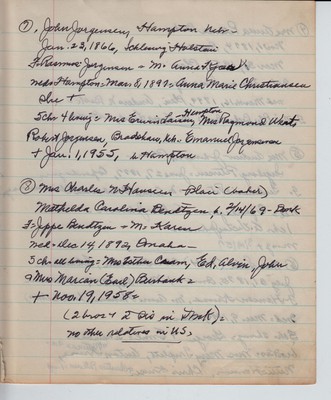 ⑦, John Jorgensen, Hampton Nebr -
Jan. 22, 1866, Schleswig Holstein
F = Rasmus Jorgensen - M: Anna
ned = Hampton = Mar 8, 1892 = Anna Marie Christiansen
She +
5 chr 4 living = Mrs Erwin Larsen, Hampton, Mrs Raymond
Robert Jorgensen, Bradshaw, Emanuel Jorgensen
+ Jan. 1, 1955, Hampton
⑧ Mrs Charles W Hansen, Blair
Mathilda Carolina Bendtzen b. 2/14/69 - Denk
F = Jeppe Bendtzen = M: Karen
ned = Dec 14, 1892, Omaha -
5 chr all living = Mrs Ed, Alvin, John
Mrs Marcan (Earl) Burbank =
+ = Nov. 19, 1958 =
(2 bros & 2 Sis in Dnk) =
no other relatives in US,